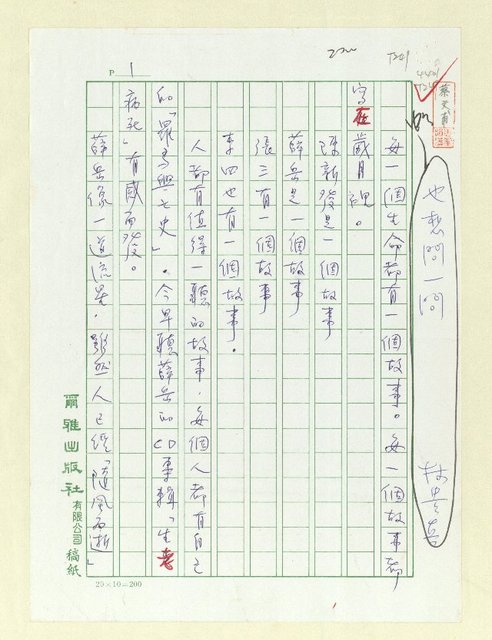 P 1
也想問一問
林貴真
每一個生命都有一個故事。每一個故事都
寫在歲月裡。
陳新發是一個故事
薛岳是一個故事
張三有一個故事
李四也有一個故事。
人都有值得一聽的故事,每個人都有自己
的「羅馬興亡史」。今早聽薛岳的CD專輯「生老
病死」有感而發。
薛岳像一道流星,雖然人已經「隨風而逝」
爾雅出版社有限公司稿紙
20×10=200
蔡文甫